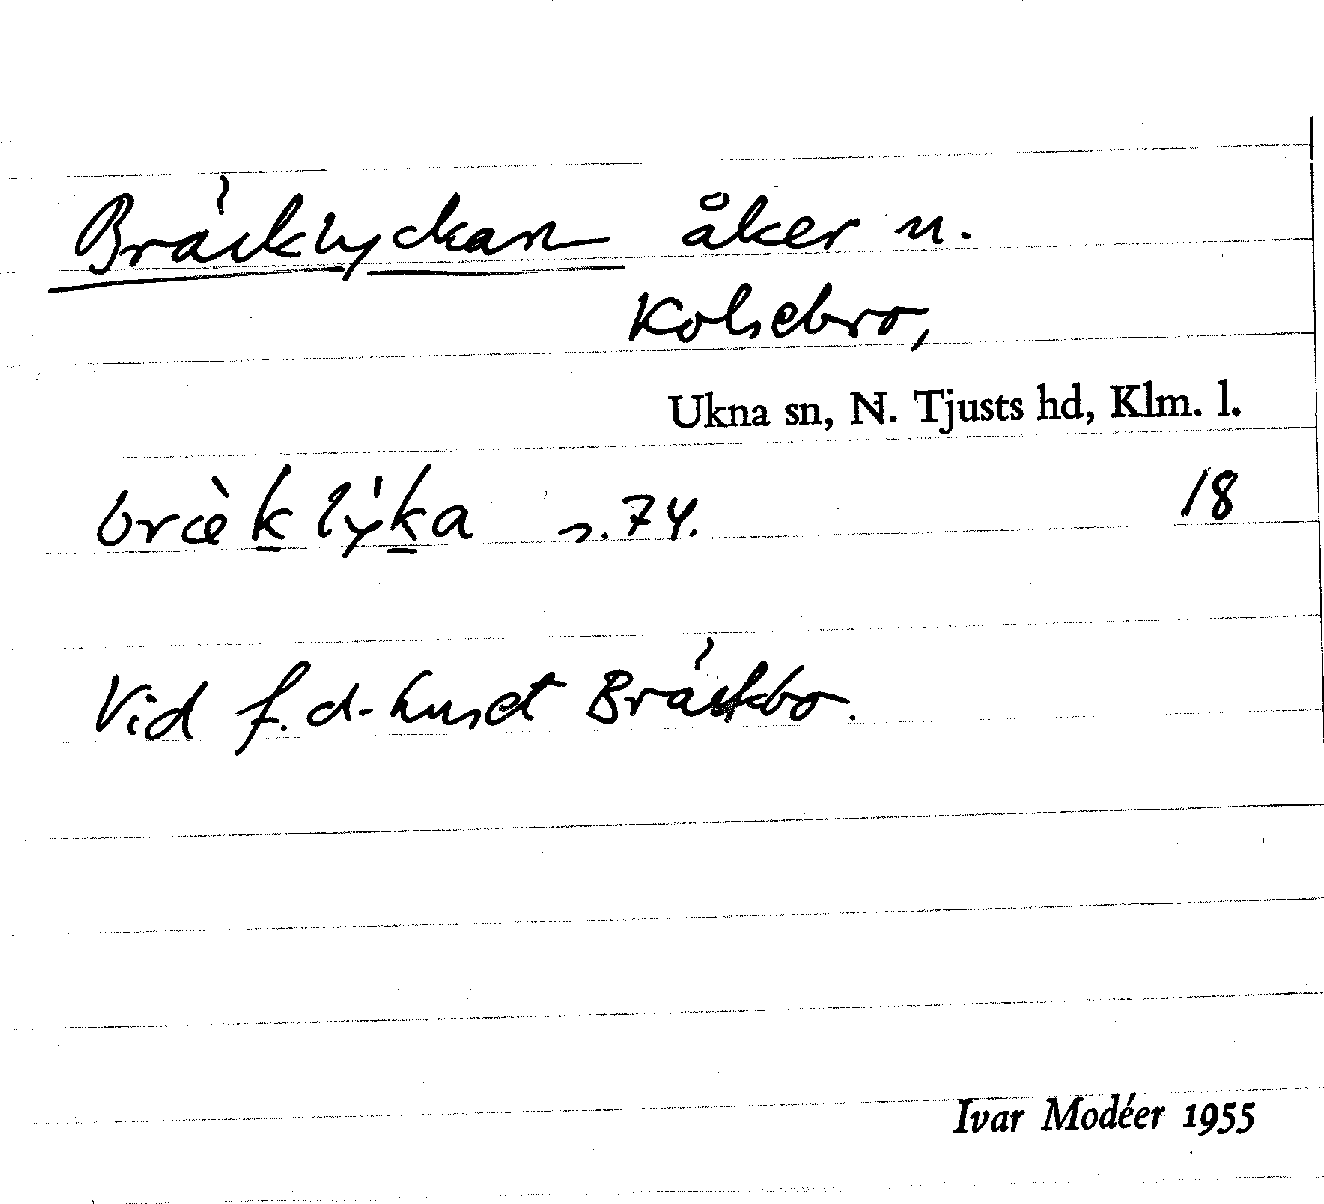 Bräcklyckan åker u.
Kolsebro,
Ukna sn, N. Tjusts hd, Klm. l.
bræ̀k lýka s.74. 18
Vid f.d. huset Bräckbo.
Ivar Modéer 1955